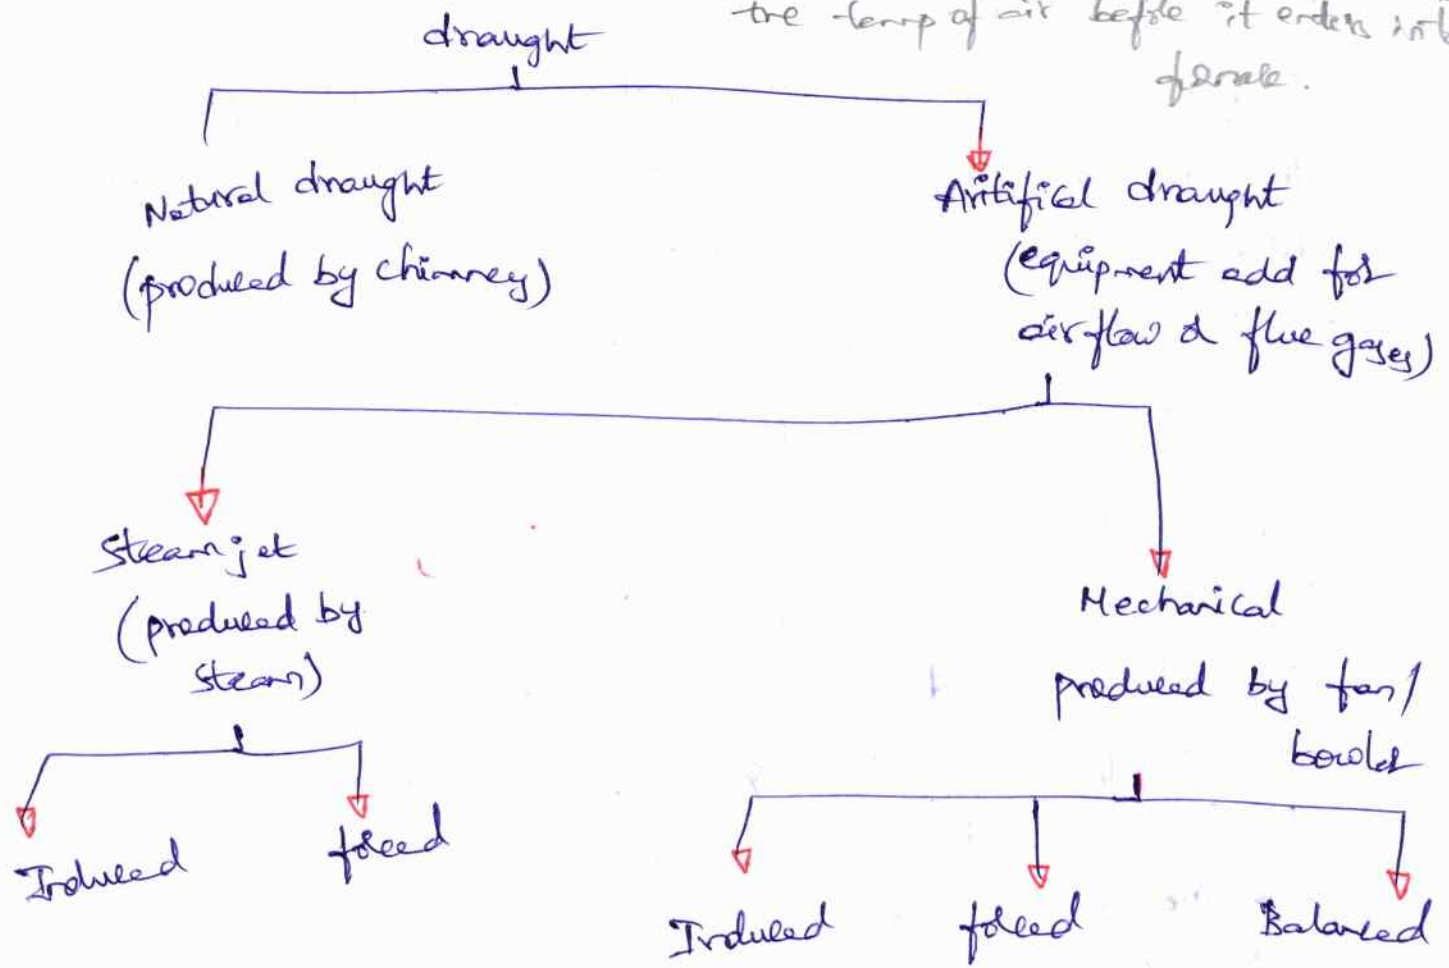 the temp of air before it enters into
furnace.
draught
Natural draught
(produced by chimney)
Aritifical draught
(equipment add for
airflow & flue gases)
Steam jet
(produced by
steam)
Mechanical
produced by fan/
bowler
Induced
forced
Induced
forced
Balanced